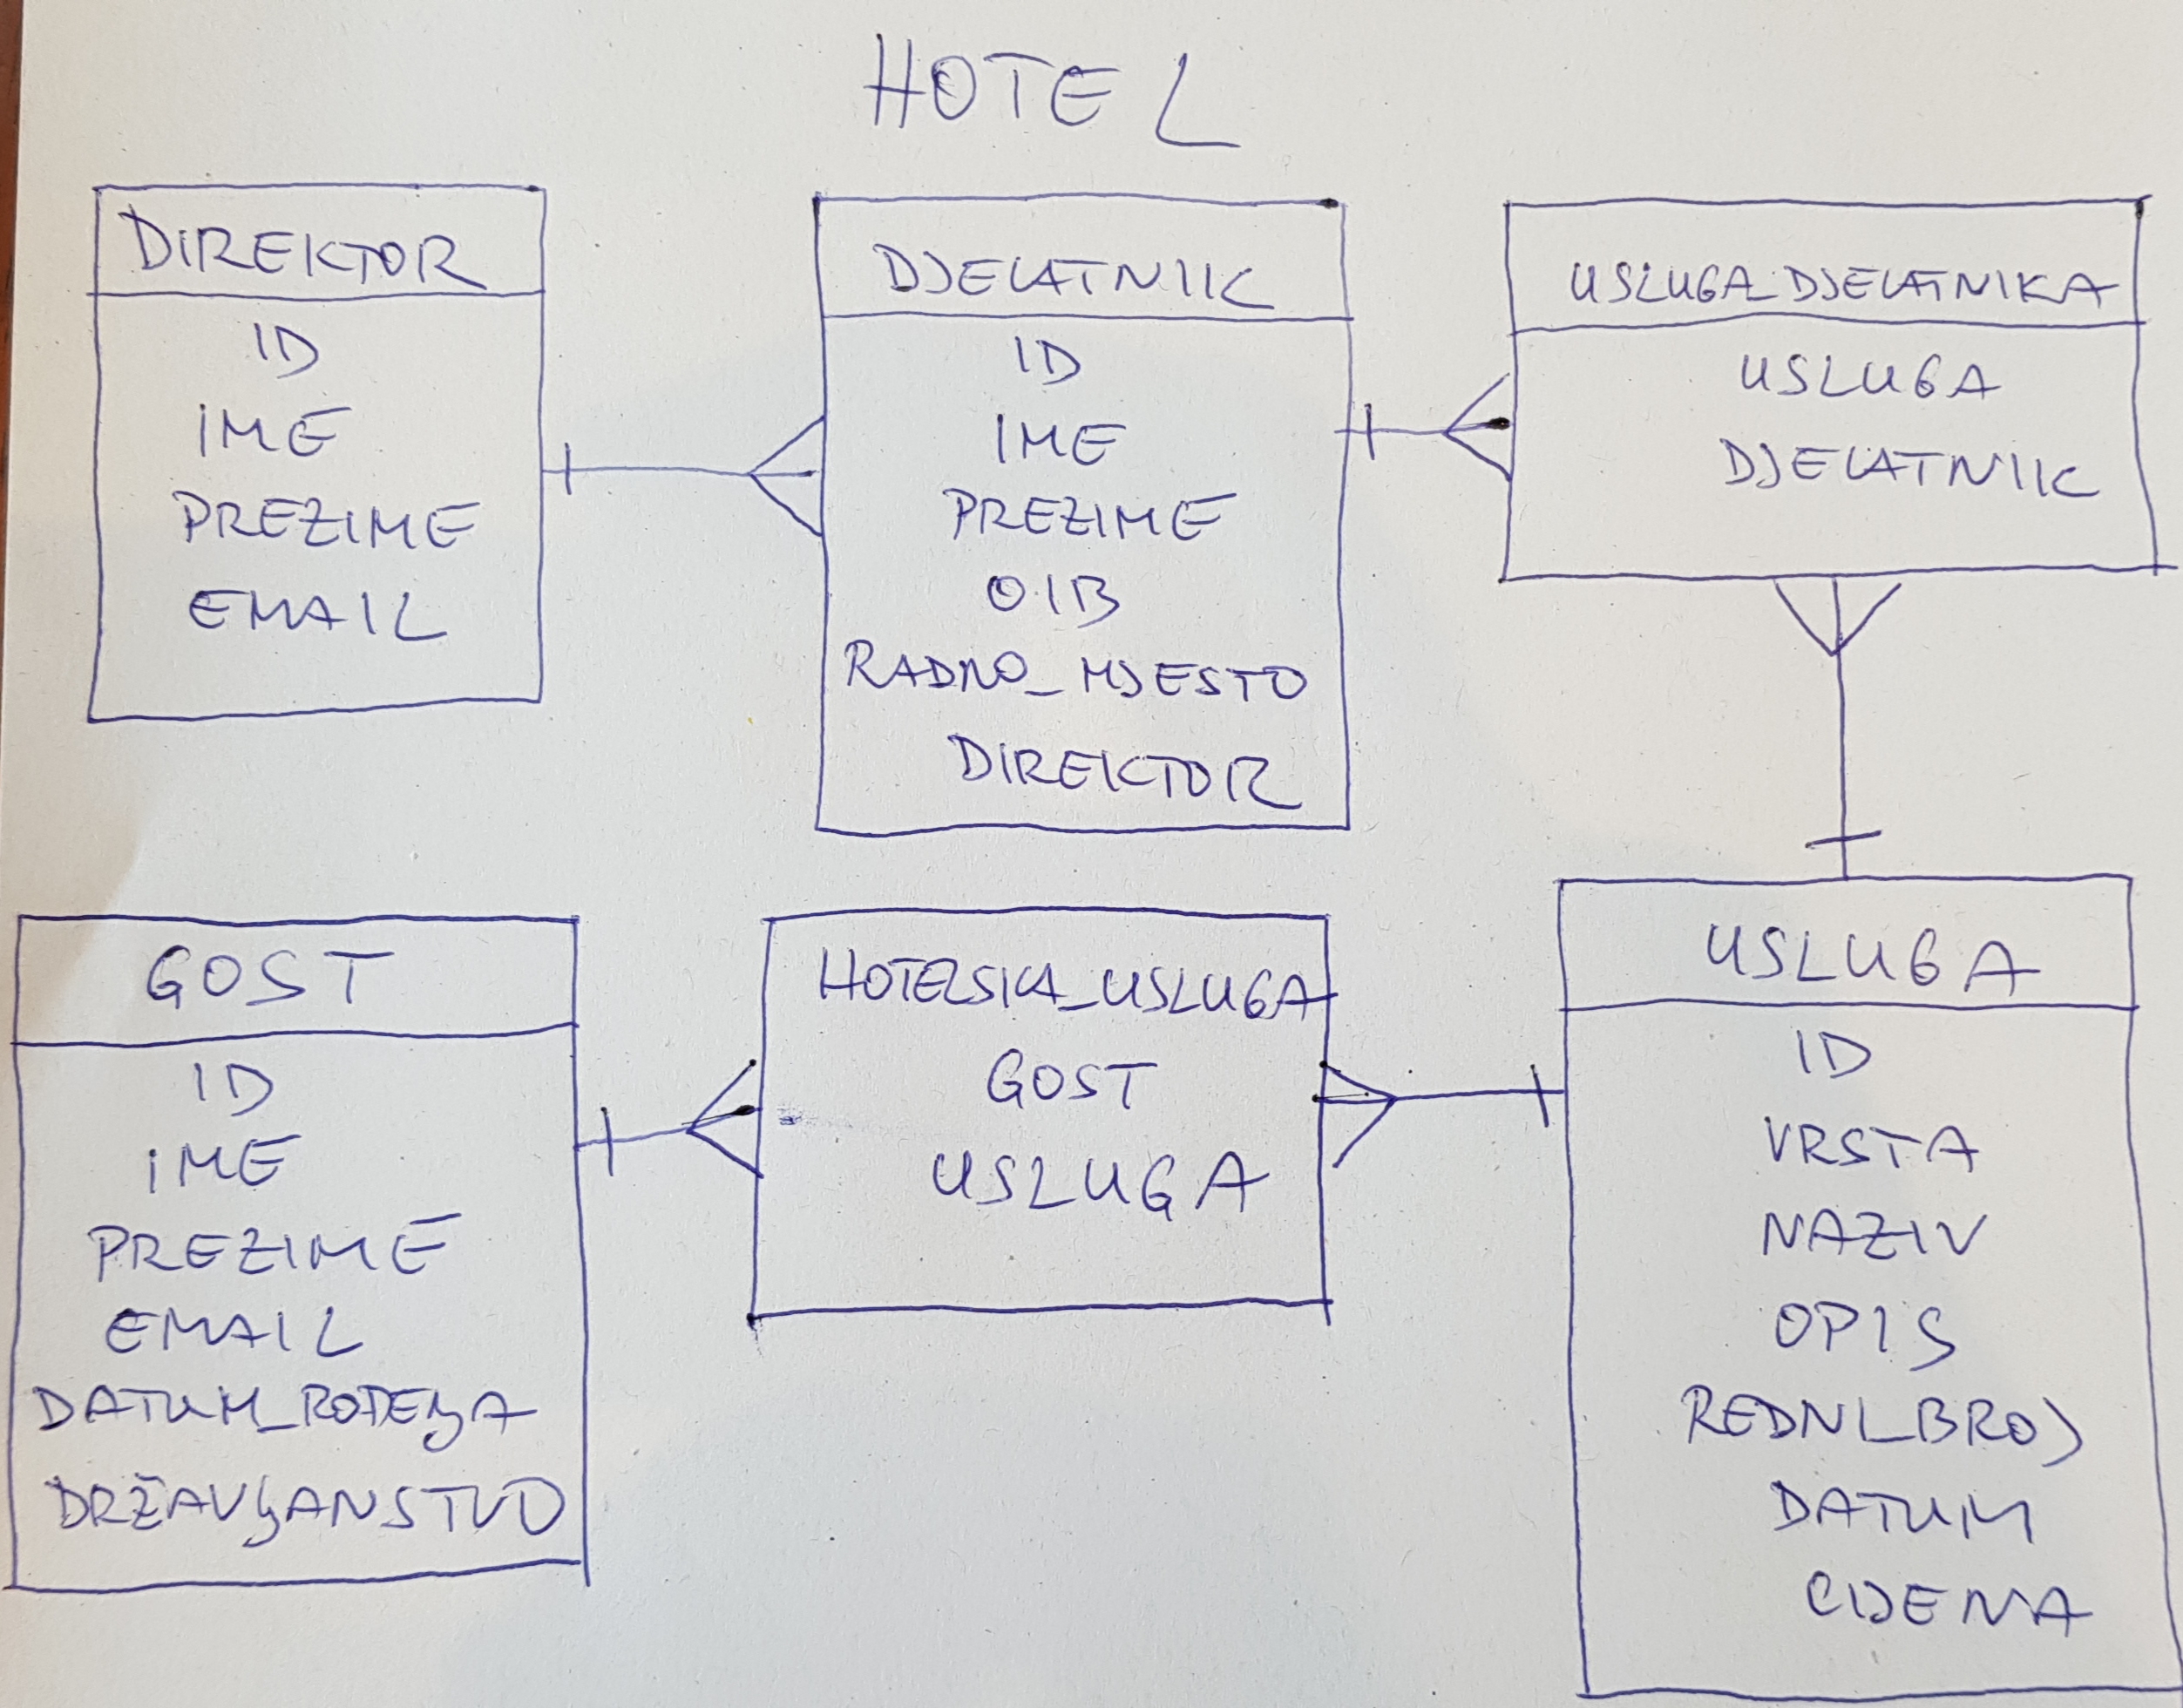 HOTEL
DIREKTOR
ID
IME
PREZIME
EMAIL
DJELATNIK
ID
IME
PREZIME
OIB
RADNO_MJESTO
DIREKTOR
USLUGA_DJELATNIKA
USLUGA
DJELATNIK
GOST
ID
IME
PREZIME
EMAIL
DATUM_ROĐENJA
DRŽAVLJANSTVO
HOTELSKA_USLUGA
GOST
USLUGA
USLUGA
ID
VRSTA
NAZIV
OPIS
REDNI_BROJ
DATUM
CIJENA